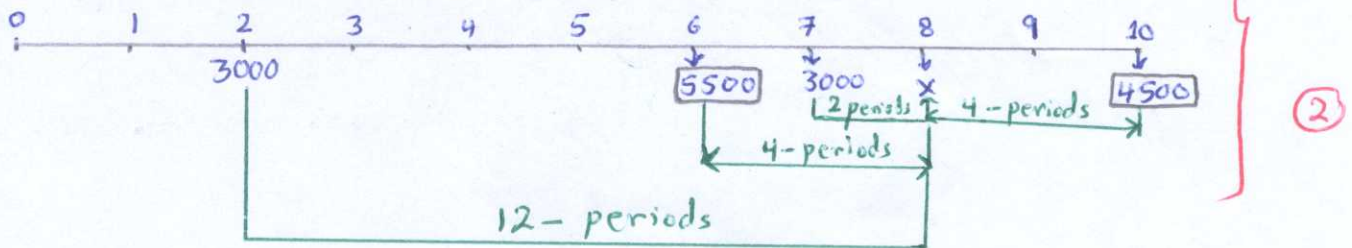 0 1 2 3 4 5 6 7 8 9 10
3000 5500 3000 X 4500
2 periods 4-periods
4-periods
12- periods
2